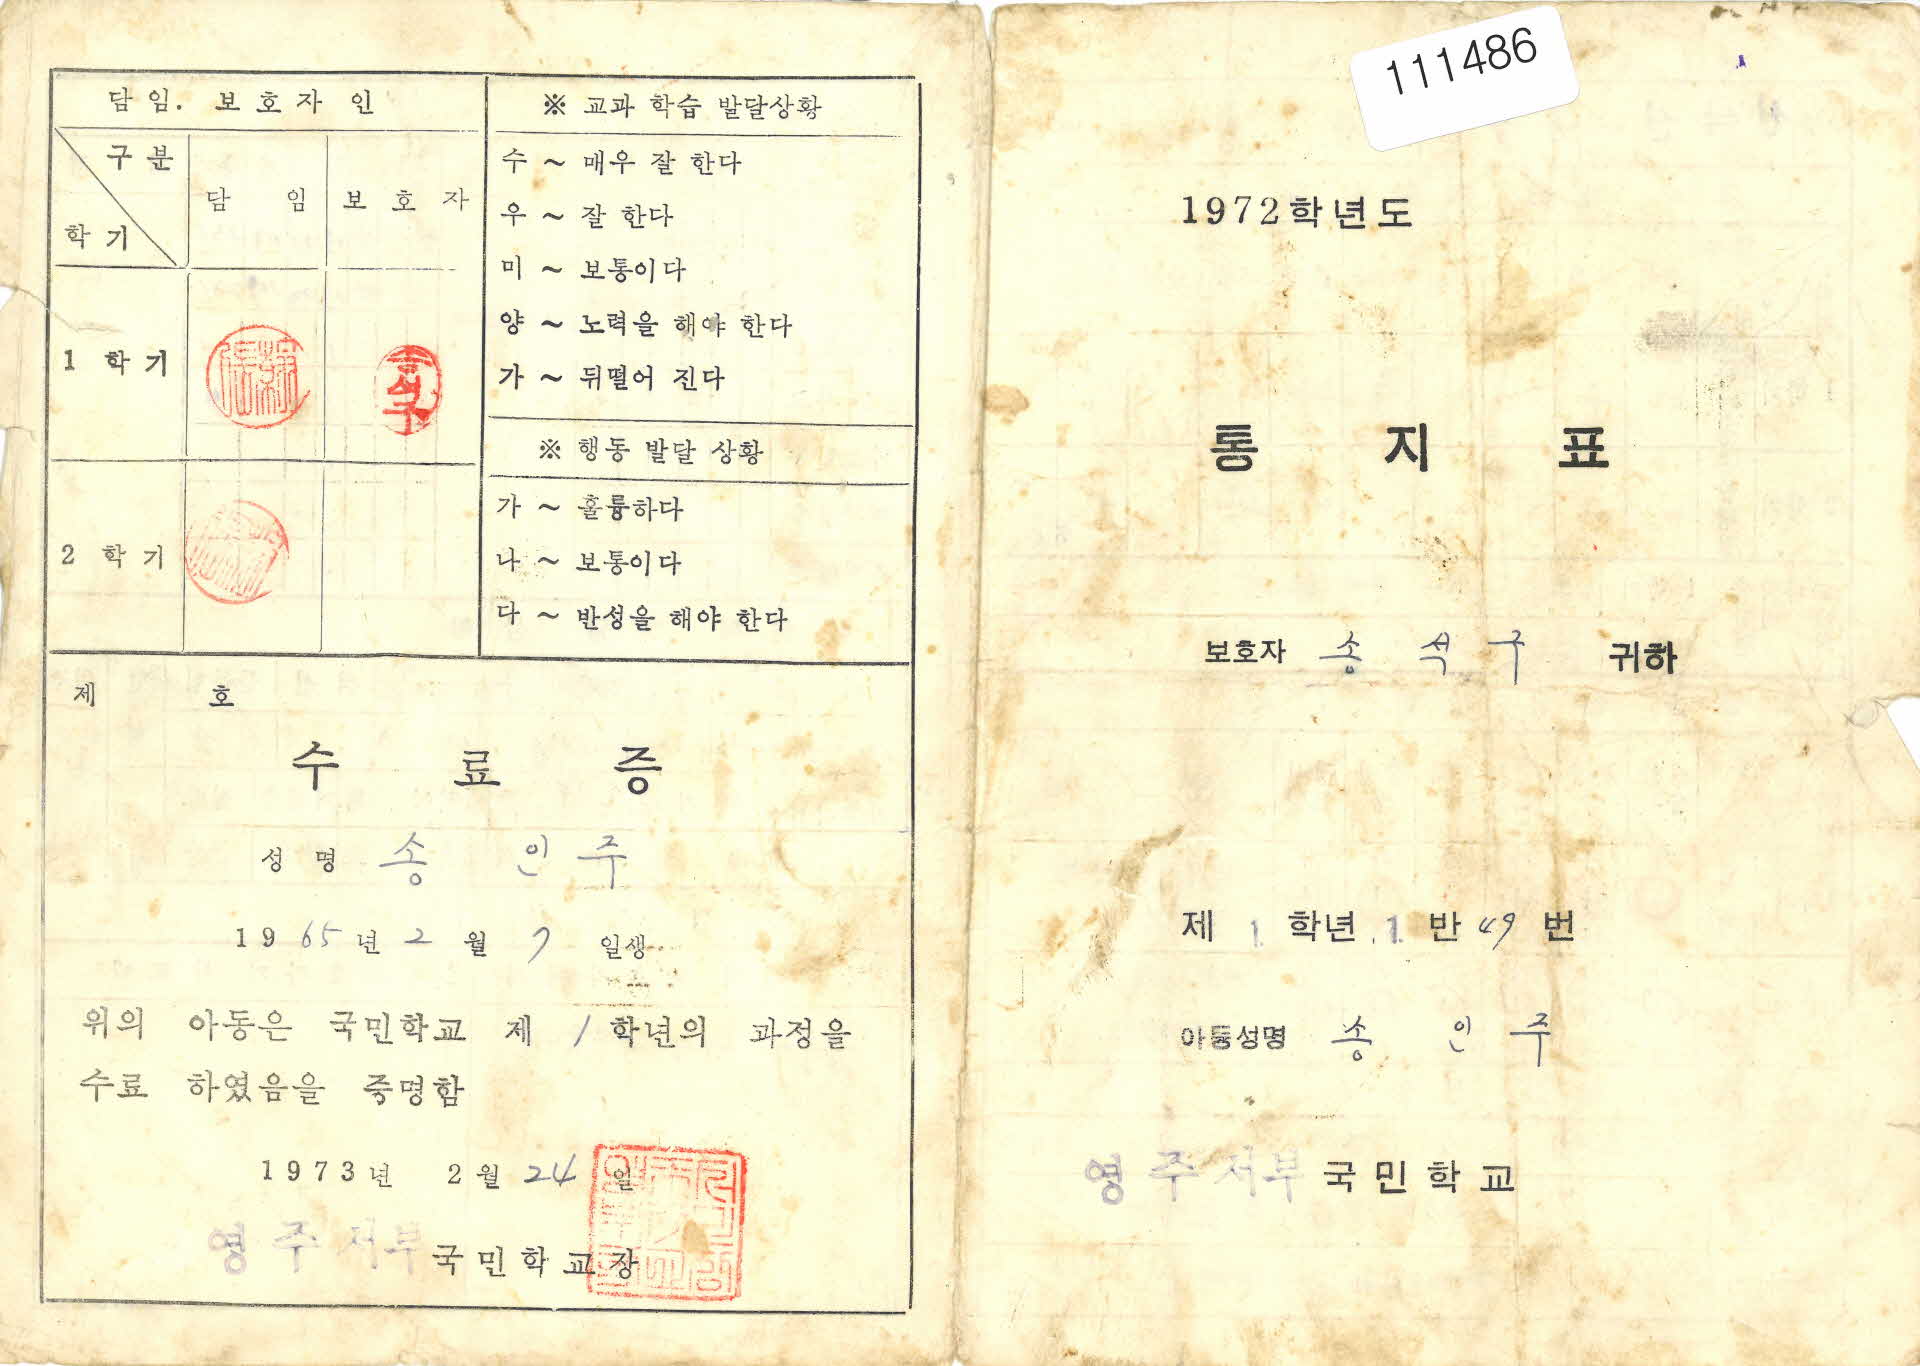 담 임. 보 호 자 인
구 분
학 기
담 임
보 호 자
1 학 기
송석구
2 학 기
※ 교과 학습 발달상황
수 ~ 매우 잘 한다
우 ~ 잘 한다
미 ~ 보통이다
양 ~ 노력을 해야 한다
가 ~ 뒤떨어 진다
※ 행동 발달 상황
가 ~ 훌륭하다
나 ~ 보통이다
다 ~ 반성을 해야 한다
제 호
수 료 증
성 명 송 인 주
1 9 65 년 2 월 7 일생
위의 아동은 국민학교 제 1 학년의 과정을
수료 하였음을 증명함
1 9 7 3 년 2 월 24 일
영 주 서부 국 민 학 교 장
111486
1972학년도
통 지 표
보호자 송 석 구 귀하
제 1 학년 1 반 49 번
아동성명 송 인 주
영 주 서부 국 민 학 교